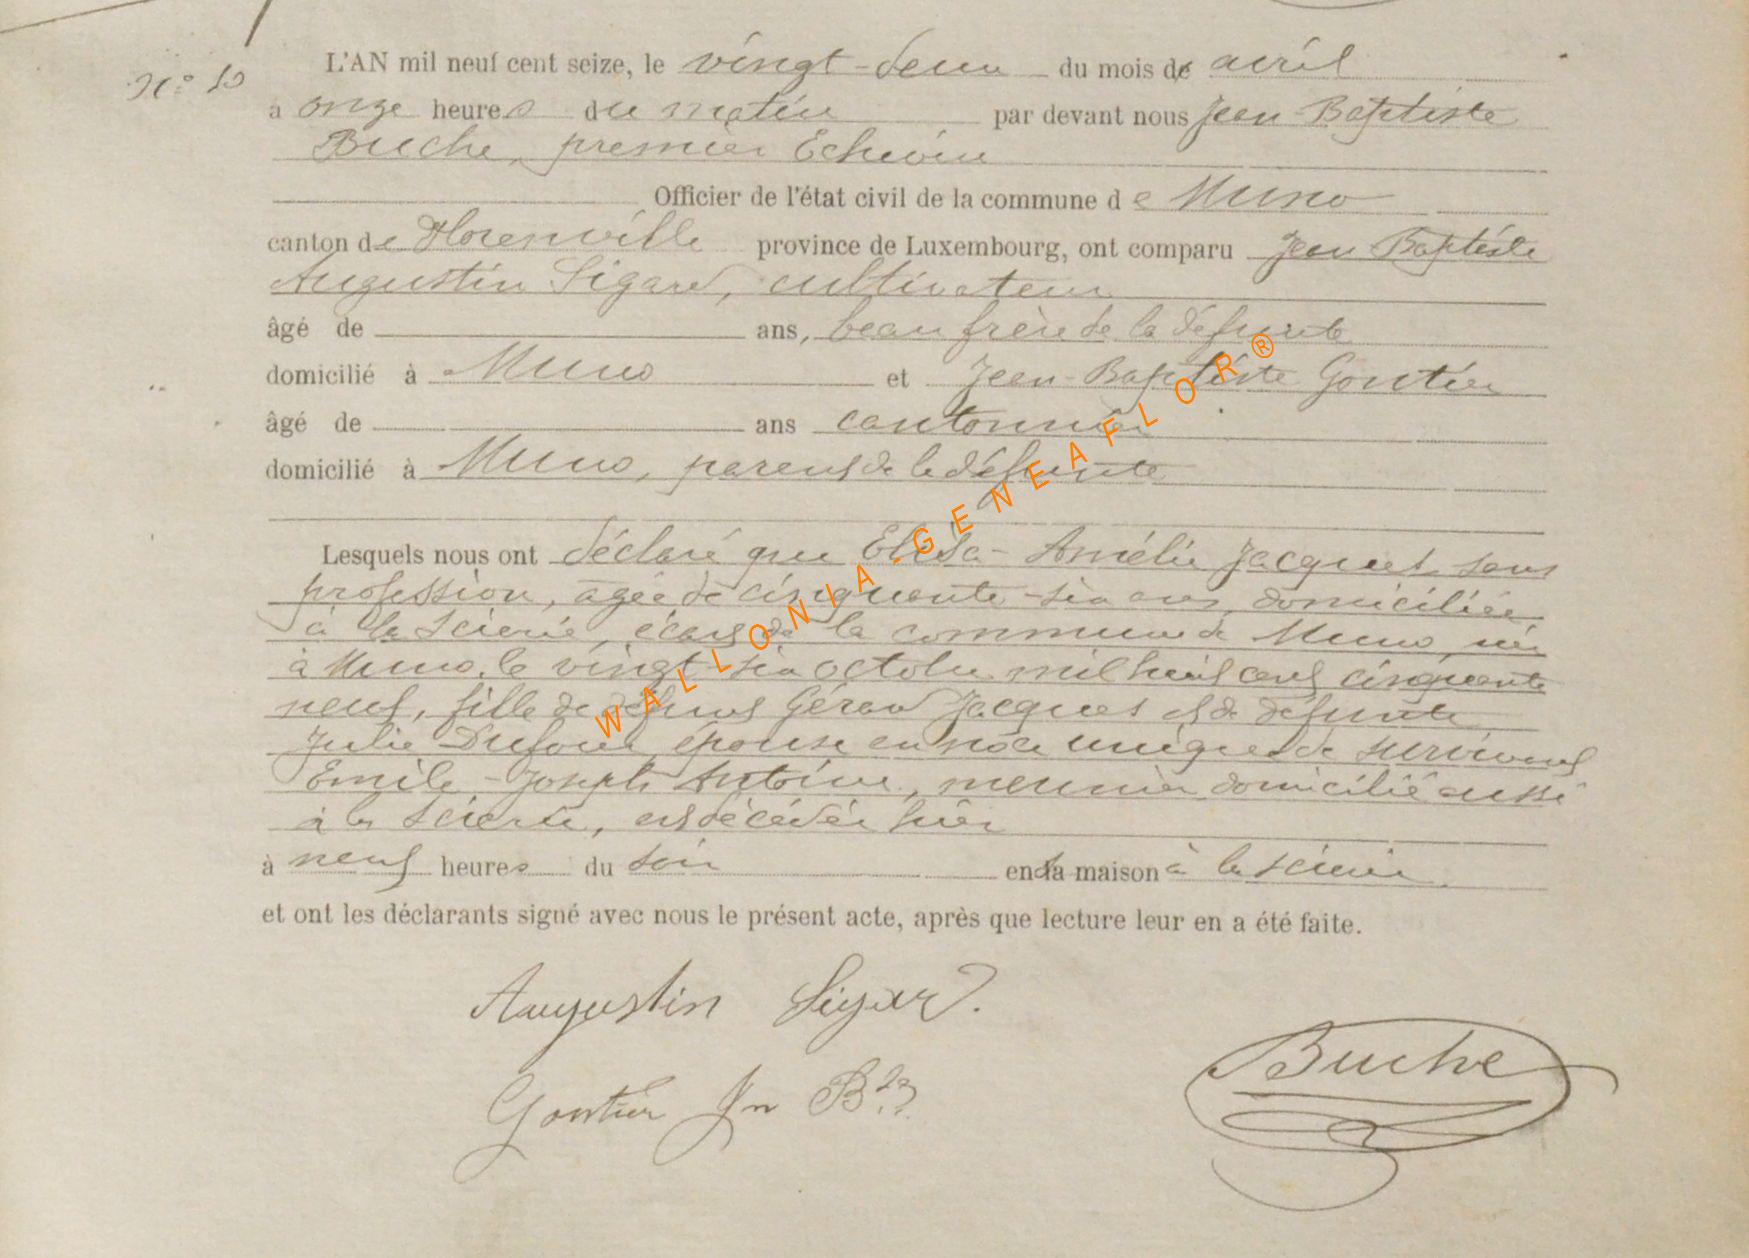 N° 10
L'AN mil neuf cent seize, le vingt-deux du mois de avril
à onze heures du matin par devant nous Jean-Baptiste
Buche, premier Echevin
Officier de l'état civil de la commune de Muno
canton de Florenville province de Luxembourg, ont comparu Jean-Baptiste
Augustin Sigard, cultivateur
âgé de ans, beau frère de la défunte
domicilié à Muno et Jean-Baptiste Gontier
âgé de ans cantonnier
domicilié à Muno, parent de la défunte
Lesquels nous ont déclaré que Elisa-Amélie Jacquet sans
profession, âgée de cinquante-six ans, domiciliée
à la Scierie, écart de la commune de Muno, née
à Muno, le vingt-six octobre mil huit cent cinquante
neuf, fille de défunt Gérard Jacques et de défunte
Julie Dufour, épouse en noce unique de survivant
Emile-Joseph Antoine, meunier domicilié aussi
à la Scierie, est décédée hier
à neuf heures du soir en sa maison à la scierie
et ont les déclarants signé avec nous le présent acte, après que lecture leur en a été faite.
Augustin Sigard.
Gontier Jn Bte
Buche
WALLONIA.GENEAFLOR®